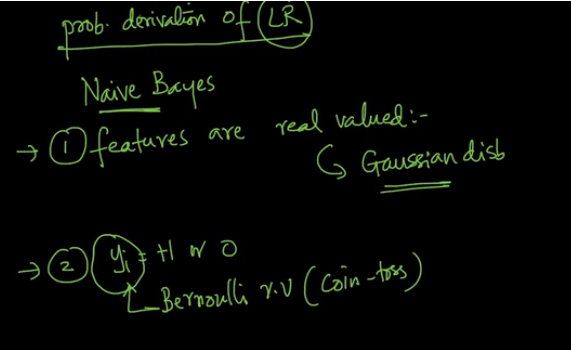 prob. derivation of LR
Naive Bayes
→ ① features are real valued:-
↳ Gaussian disb
→ ② yᵢ = +1 or 0
Bernoulli r.v (coin-toss)